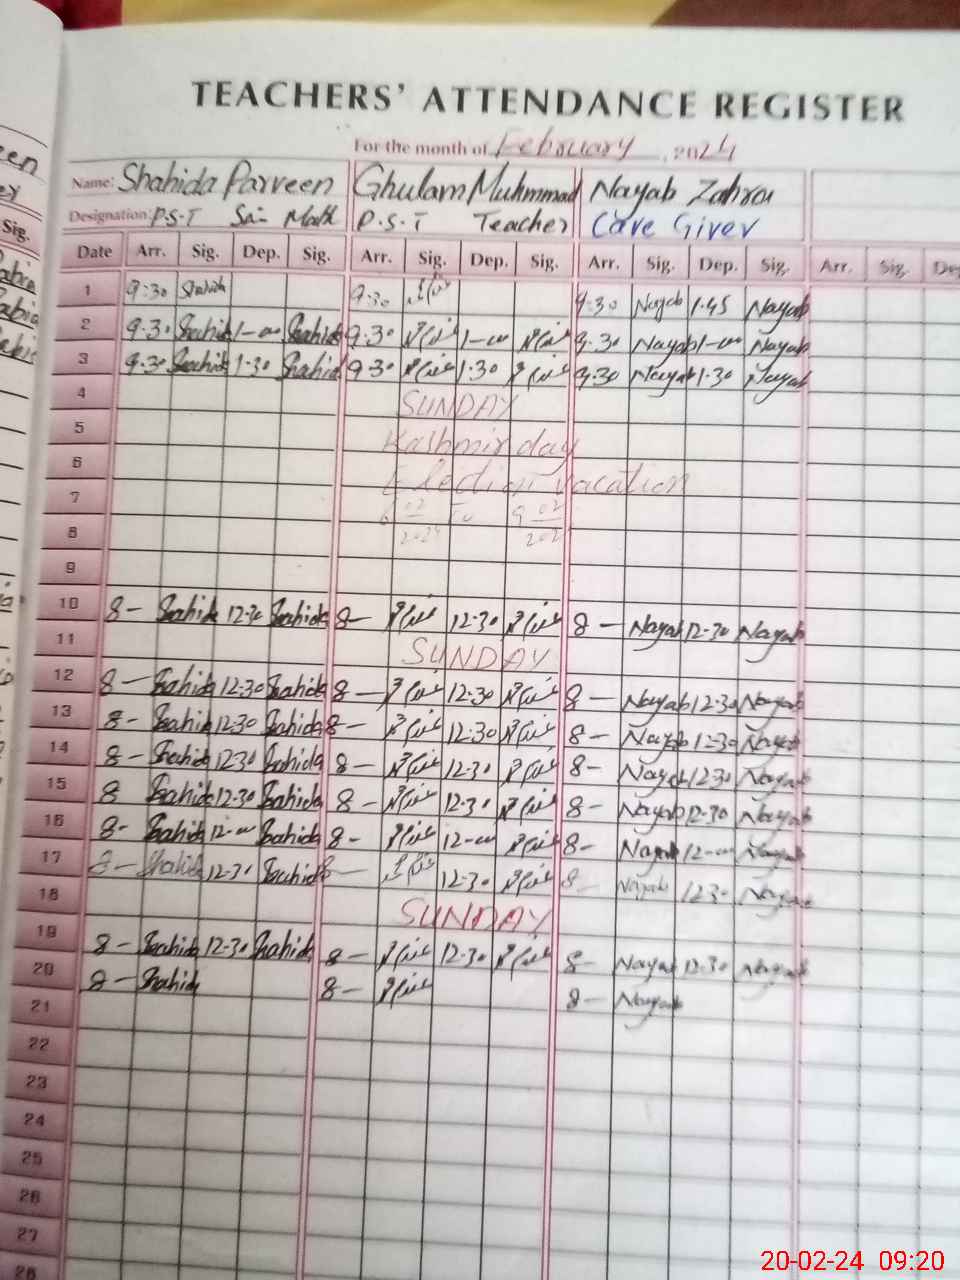 TEACHERS' ATTENDANCE REGISTER
For the month of February, 2024
Name: Shahida Parveen Ghulam Muhmmad Nayab Zahra
Designation: P.S.T Sa- Math P.S.T Teacher Care Giver
Date Arr. Sig. Dep. Sig. Arr. Sig. Dep. Sig. Arr. Sig. Dep. Sig. Arr. Sig. De
1 9:30 Shahida 9:30 9:30 Nayab 1.45 Nayab
2 9.30 Shahida 1-00 Shahida 9.30 1-00 9.30 Nayab 1-00 Nayab
3 9.30 Shahida 1.30 Shahida 9.30 1.30 9.30 Nayab 1.30 Nayab
4 SUNDAY
5 Kashmir day
6 Election vacation
7 6 02 2024 To 9 02 202
8
9
10 8- Shahida 12-30 Shahida 8- 12-30 8- Nayab 12-30 Nayab
11 SUNDAY
12 8- Shahida 12-30 Shahida 8- 12-30 8- Nayab 12-30 Nayab
13 8- Shahida 12-30 Shahida 8- 12-30 8- Nayab 12-30 Nayab
14 8- Shahida 12-30 Shahida 8- 12-30 8- Nayab 12-30 Nayab
15 8 Shahida 12-30 Shahida 8- 12-30 8- Nayab 12-30 Nayab
16 8- Shahida 12-00 Shahida 8- 12-00 8- Nayab 12-00 Nayab
17 8- Shahida 12-30 Shahida 8- 12-30 8- Nayab 12-30 Nayab
18 SUNDAY
19 8- Shahida 12-30 Shahida 8- 12-30 8- Nayab 12-30 Nayab
20 8- Shahida 8- 8- Nayab
21
22
23
24
25
26
27
28
20-02-24 09:20